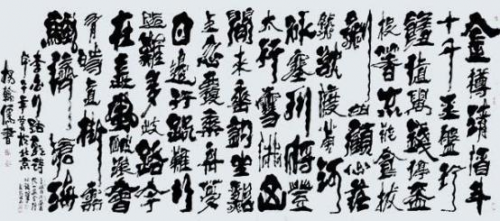 金樽清酒斗
十千玉盤珍
羞值萬錢停杯
投箸不能食拔
劍四顧心茫
然欲渡黃河
冰塞川將登
太行雪滿山
閒來垂釣碧
溪上忽復乘舟夢
日邊行路難行
路難多岐路今
安在長風破浪會
有時直掛雲
帆濟滄海
李白行路難詩